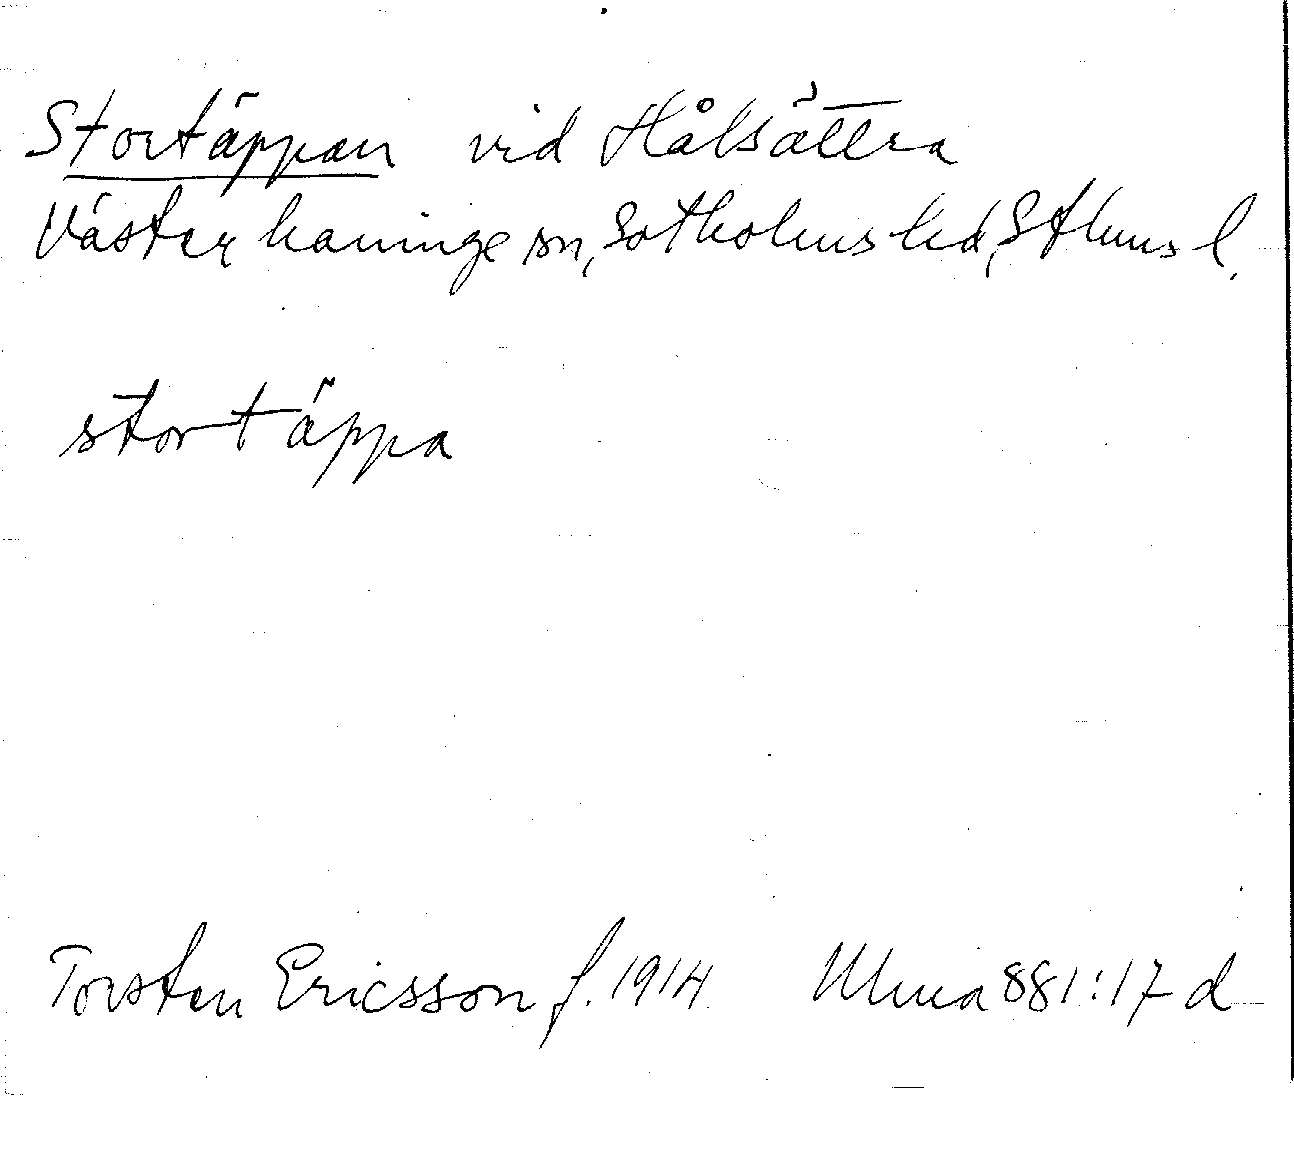 Stortäppan vid Hålsättra
Västerhaninge sn, Sotholms hd, Sthms l.
stortäppa
Torsten Ericsson f. 1914 Uma 881:17 d